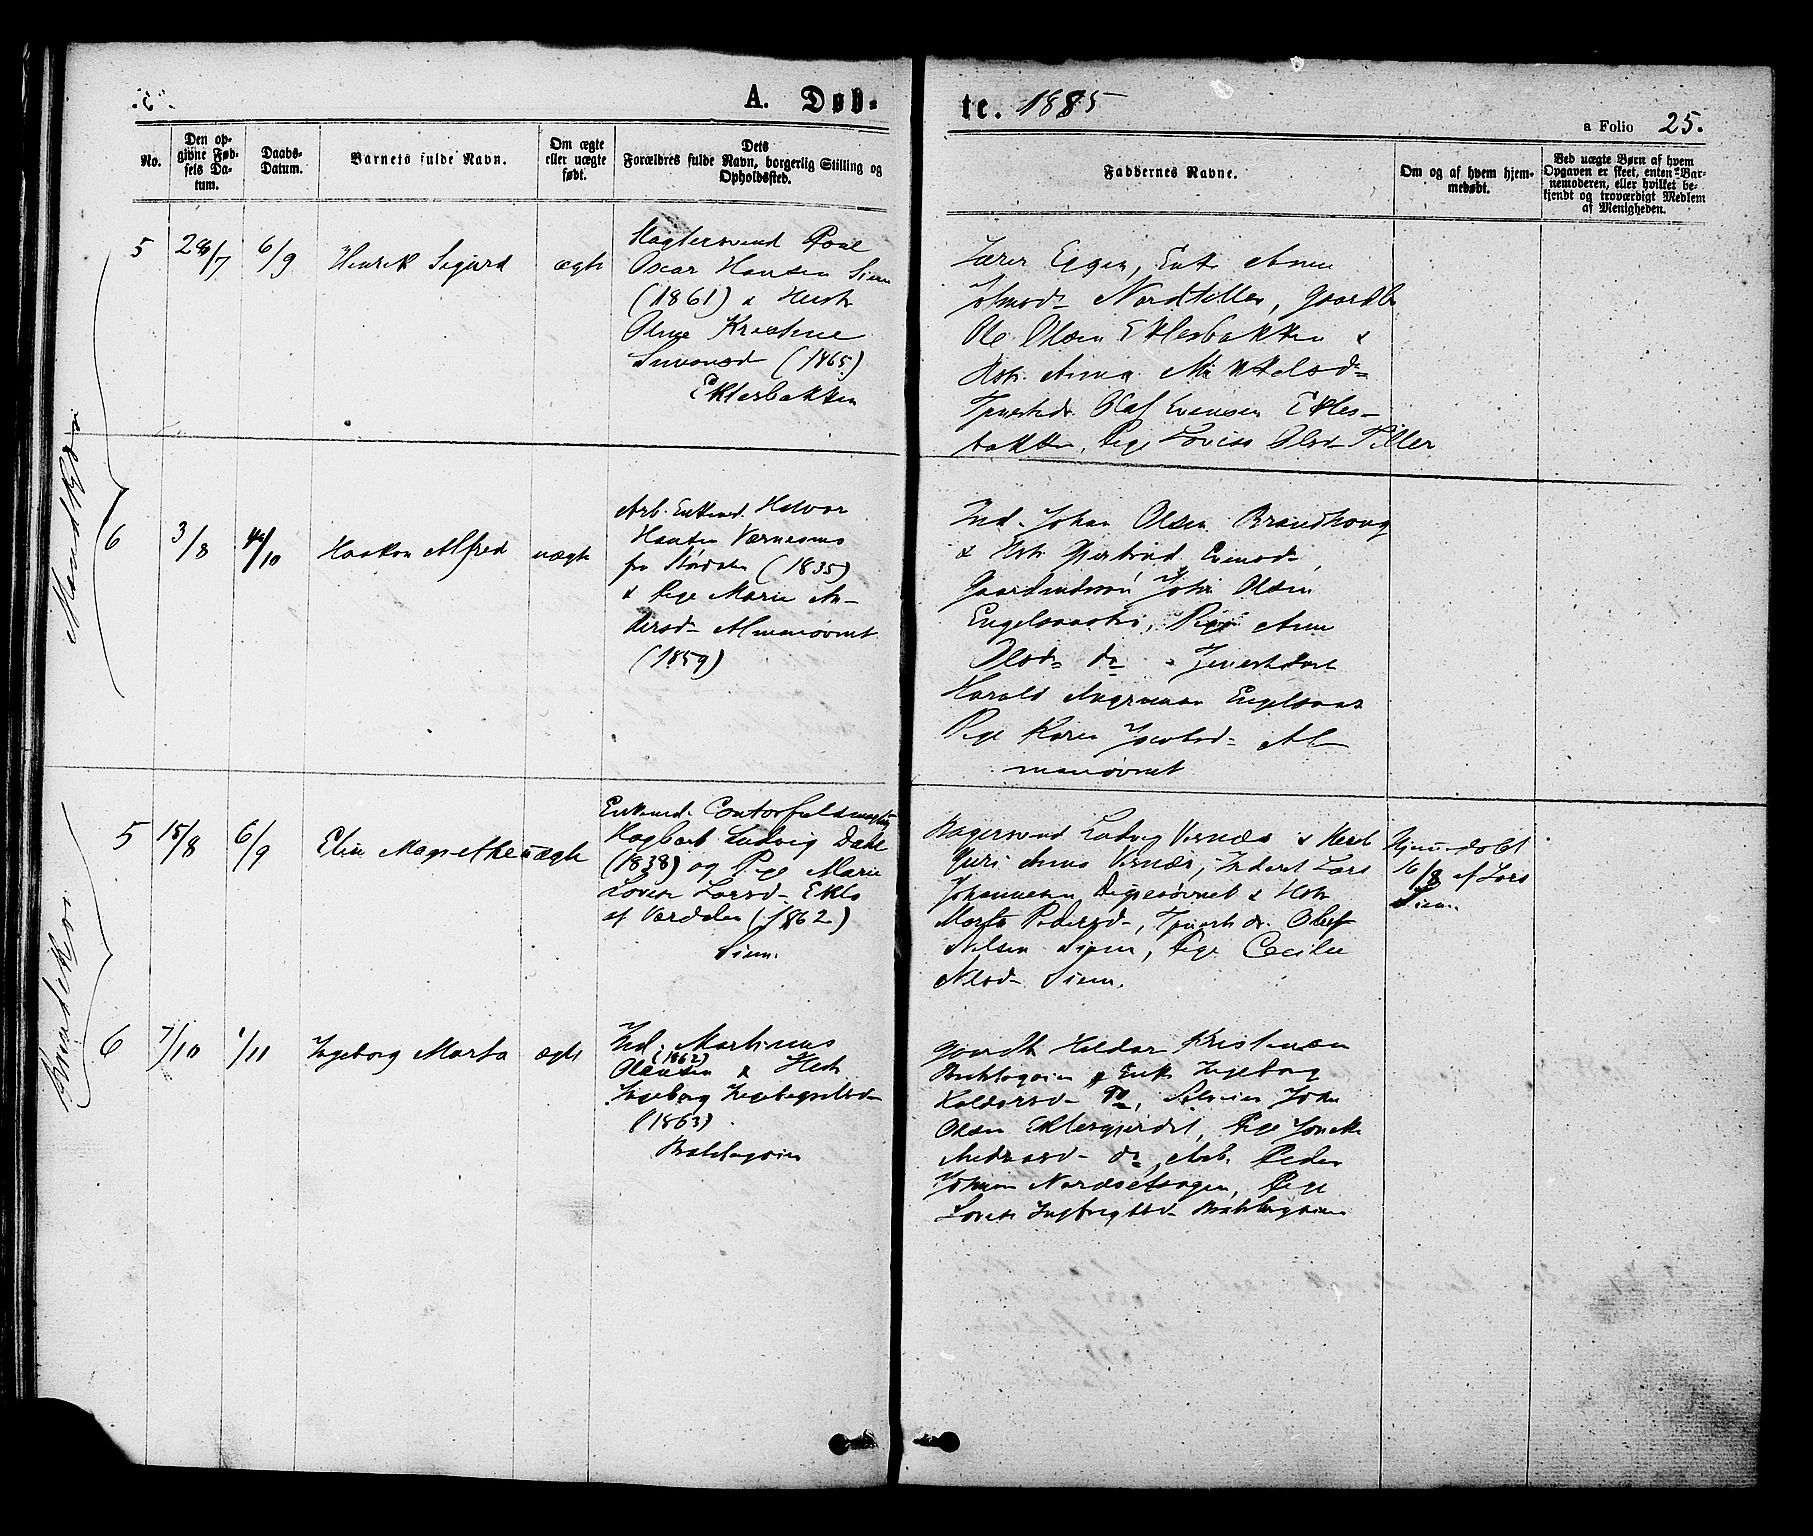 A. Døb-
te. 1885
a Folio 25.
No.
Den op-
givne Fød-
sels Da-
tum.
Daabs-
Datum.
Barnets fulde Navn.
Om ægte
eller uægte
født.
Dets
Forældres fulde Navn, borgerlig Stilling og
Opholdssted.
Faddernes Navne.
Om og af hvem hjem-
medøbt.
Ved uægte Børn af hvem
Opgaven er skeet, enten Bar-
nemoderen, eller hvilket be-
kjendt og troværdigt Medlem
af Menigheden.
Mandkjøn
5
6/9
Henrik Sigurd
ægte
Slagtersvend
Oscar Hansen Siem
(1861) & Hust
Oline Kristine
Simonsd (1865)
Eklesbakken
Lærer Eggen, Enke Anne
Nordtiller, Gaardb
Ole Olsen Eklesbakken &
Hstr. Anna Mikkelsd-
Tjenestedr. Olaf Evensen Ekles-
bakken, Pige Lovise Olsd- Tiller
6
3/8
4/10
Haakon Alfred
uægte
Arb. Enkemd. Halvor
Hansen Værnesmo
fra Størdalen (1835)
& Pige Marie An-
dersd- Almanøvret
(1859)
Ind. Johan Olsen Brandhoug
& Hstr Gjertrud Evensd-,
Gaardmdssøn John Olsen
Engelsaastrø, Pige Anne
Olsd- do - Tjenestekarl
Harald Engelsaas
Pige Karen Jacobsd- Al-
manøvret
Kvindekjøn
5
15/8
6/9
Elen Magrethe
uægte
Enkemd. Contorfuldmægtig
Hagbart Ludvig Dahl
(1838) og Pige Marie
Lovise Larsd- Eklo
af Værdalen (1862)
Siem.
Bagersvend Ludvig Vernæs &
Guri Anna Vernæs, Inderst Lars
Johannesen & Hstr
Marta Pedersd-, Tjenestedr. Oluf
Nilsen Siem, Pige Cecilie
Nilsd- Siem.
Hjemmedøbt
16/8 af Lars
Siem.
6
7/10
1/11
Ingeborg Marta
ægte
Ind. Martinus
(1862)
Olausen & Hust
Ingeborg Ingebrigtsd-
(1863)
Gaardb Haldor Kristensen
& Enke Ingeborg
Haldorsd- Do, John
Olsen Eklesgjerdet, Pige
Andreasd- do, Arb. Peder
Johnsen Nordsetsagen, Pige
Lovise Ingebrigtsd-